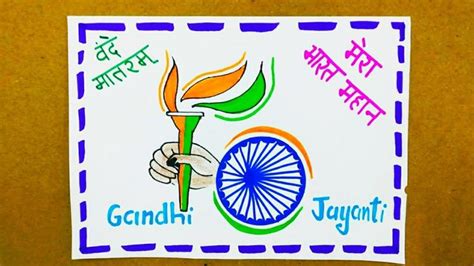 वंदे
मातरम
मेरा
भारत महान
Gandhi Jayanti